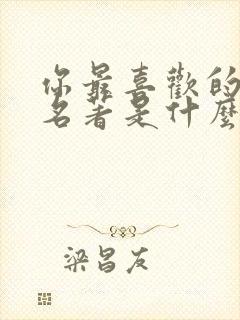 你最喜歡的
名著是什麼
梁昌友